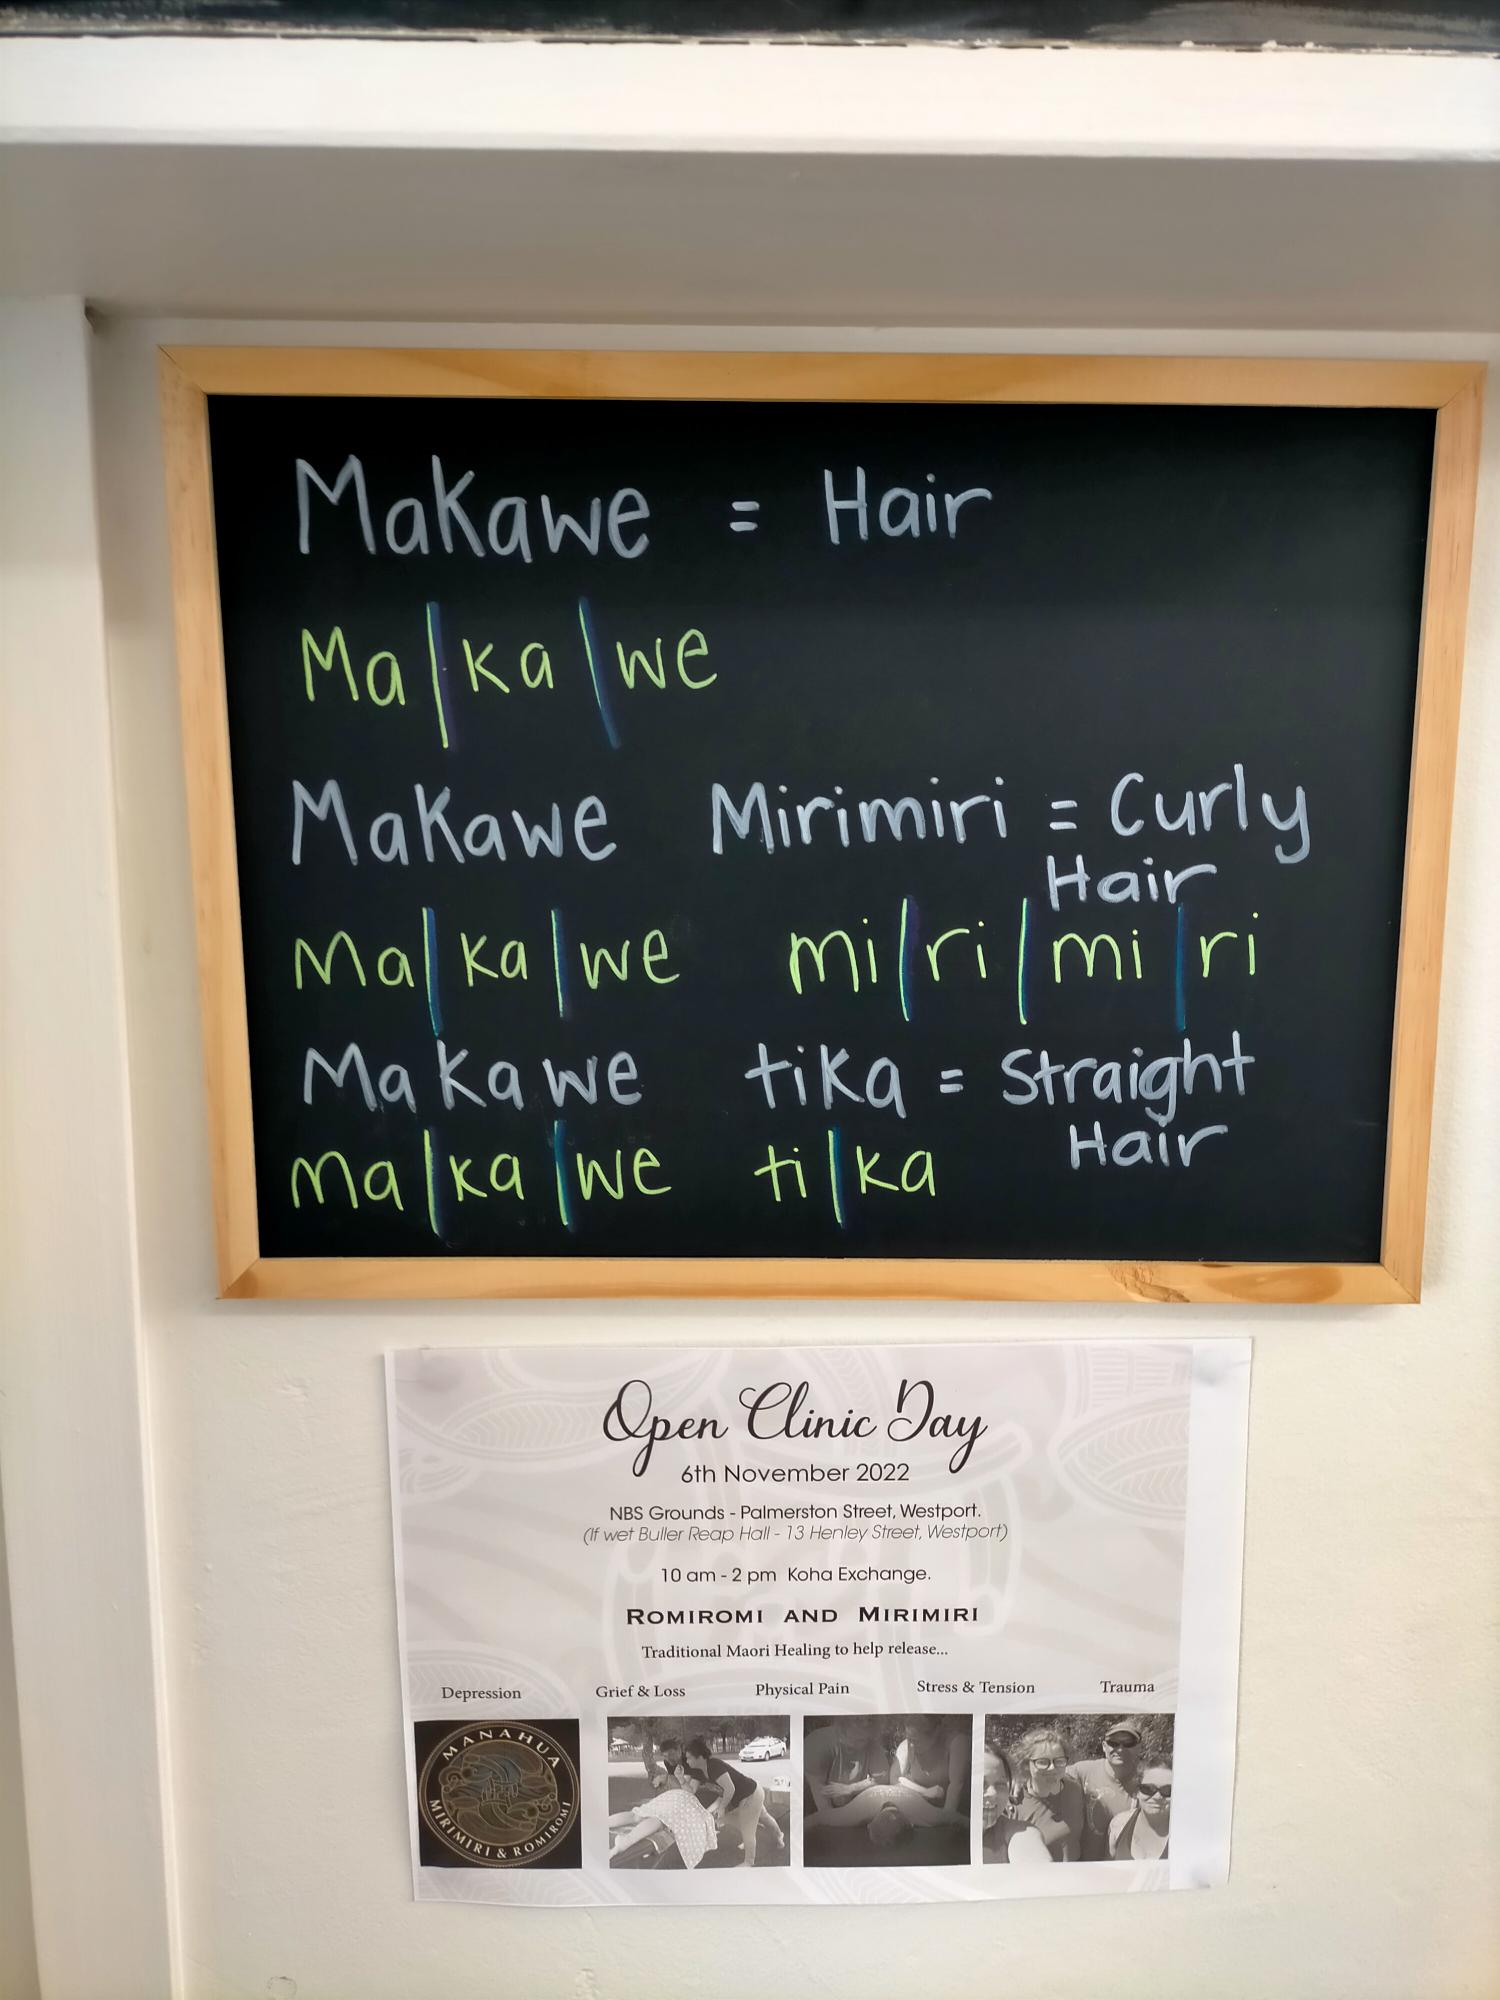 Makawe = Hair
Ma|ka|we
Makawe Mirimiri = Curly
Hair
Ma|ka|we mi|ri|mi|ri
Makawe tika = Straight
Hair
Ma|ka|we ti|ka
Open Clinic Day
6th November 2022
NBS Grounds - Palmerston Street, Westport.
(If wet Buller Reap Hall - 13 Henley Street, Westport)
10 am - 2 pm Koha Exchange.
ROMIROMI AND MIRIMIRI
Traditional Maori Healing to help release...
Depression Grief & Loss Physical Pain Stress & Tension Trauma
MANAHUA
MIRIMIRI & ROMIROMI